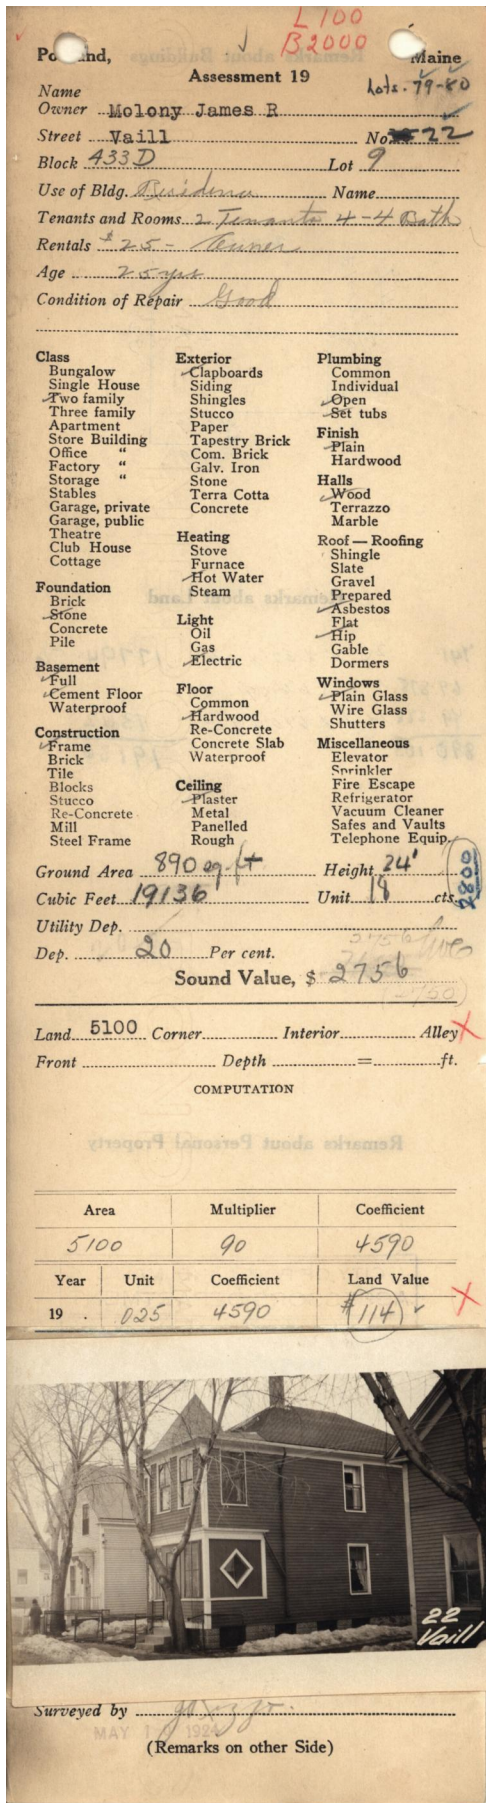 L 100
B 2000
Po nd, Maine
Assessment 19
Lots. 79-80
Name
Owner Molony James R
Street Vaill No. 22
Block 433D Lot 9
Use of Bldg. Residence Name
Tenants and Rooms 2 Tenants 4-4 Bath
Rentals $25-
Age 25 yrs
Condition of Repair Good
Class
Bungalow
Single House
Two family
Three family
Apartment
Store Building
Office "
Factory "
Storage "
Stables
Garage, private
Garage, public
Theatre
Club House
Cottage
Foundation
Brick
Stone
Concrete
Pile
Basement
Full
Cement Floor
Waterproof
Construction
Frame
Brick
Tile
Blocks
Stucco
Re-Concrete
Mill
Steel Frame
Exterior
Clapboards
Siding
Shingles
Stucco
Paper
Tapestry Brick
Com. Brick
Galv. Iron
Stone
Terra Cotta
Concrete
Heating
Stove
Furnace
Hot Water
Steam
Light
Oil
Gas
Electric
Floor
Common
Hardwood
Re-Concrete
Concrete Slab
Waterproof
Ceiling
Plaster
Metal
Panelled
Rough
Plumbing
Common
Individual
Open
Set tubs
Finish
Plain
Hardwood
Halls
Wood
Terrazzo
Marble
Roof — Roofing
Shingle
Slate
Gravel
Prepared
Asbestos
Flat
Hip
Gable
Dormers
Windows
Plain Glass
Wire Glass
Shutters
Miscellaneous
Elevator
Sprinkler
Fire Escape
Refrigerator
Vacuum Cleaner
Safes and Vaults
Telephone Equip.
Ground Area 890 sq. ft Height 24'
Cubic Feet 19136 Unit 18 cts.
2800
Utility Dep.
Dep. 20 Per cent.
Sound Value, $ 2756
Land 5100 Corner Interior Alley
Front Depth = ft.
COMPUTATION
Area Multiplier Coefficient
5100 90 4590
Year Unit Coefficient Land Value
19 . 025 4590 #114
22
Vaill
Surveyed by
MAY 1 1924
(Remarks on other Side)